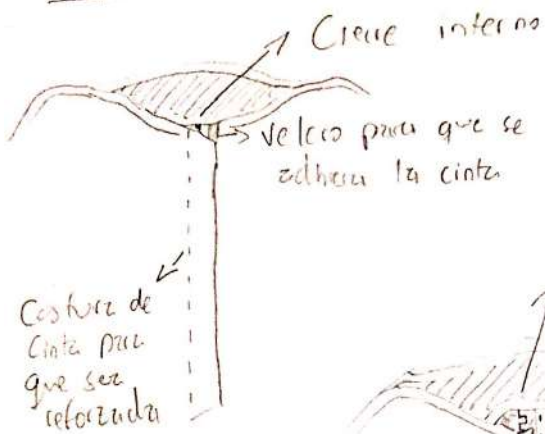 Cierre interno
Velcro para que se
adhiera la cinta
Costura de
cinta para
que sea
reforzada